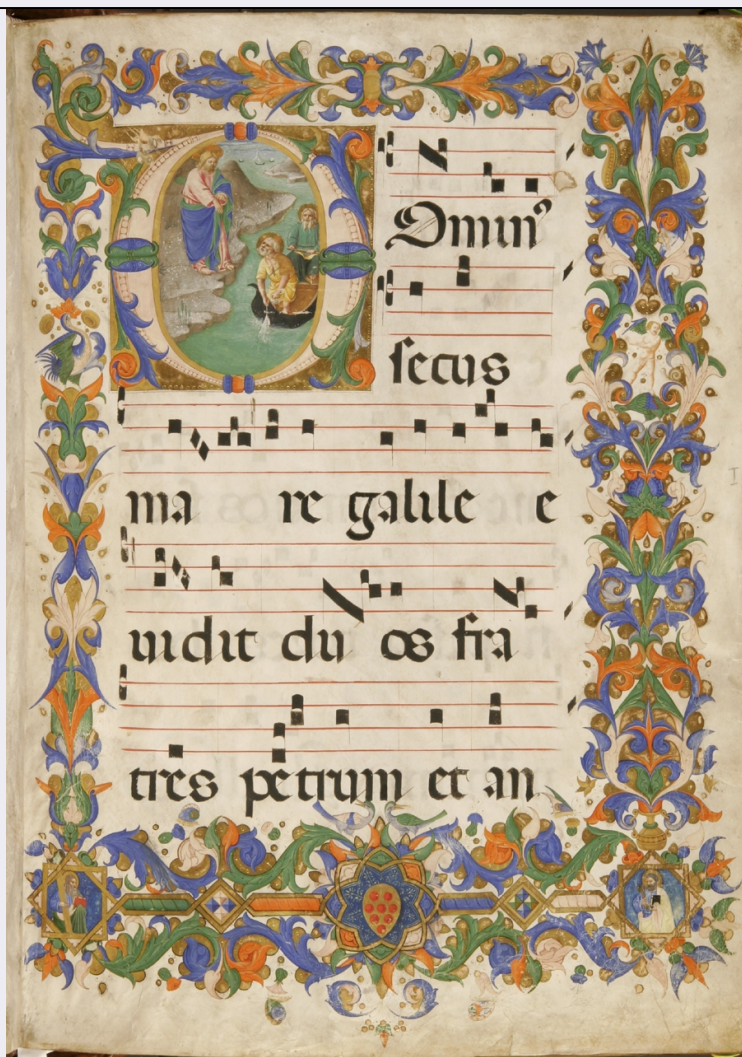 Dominꝰ
secus
ma re galile e
uidit du os fra
tres petrum et an